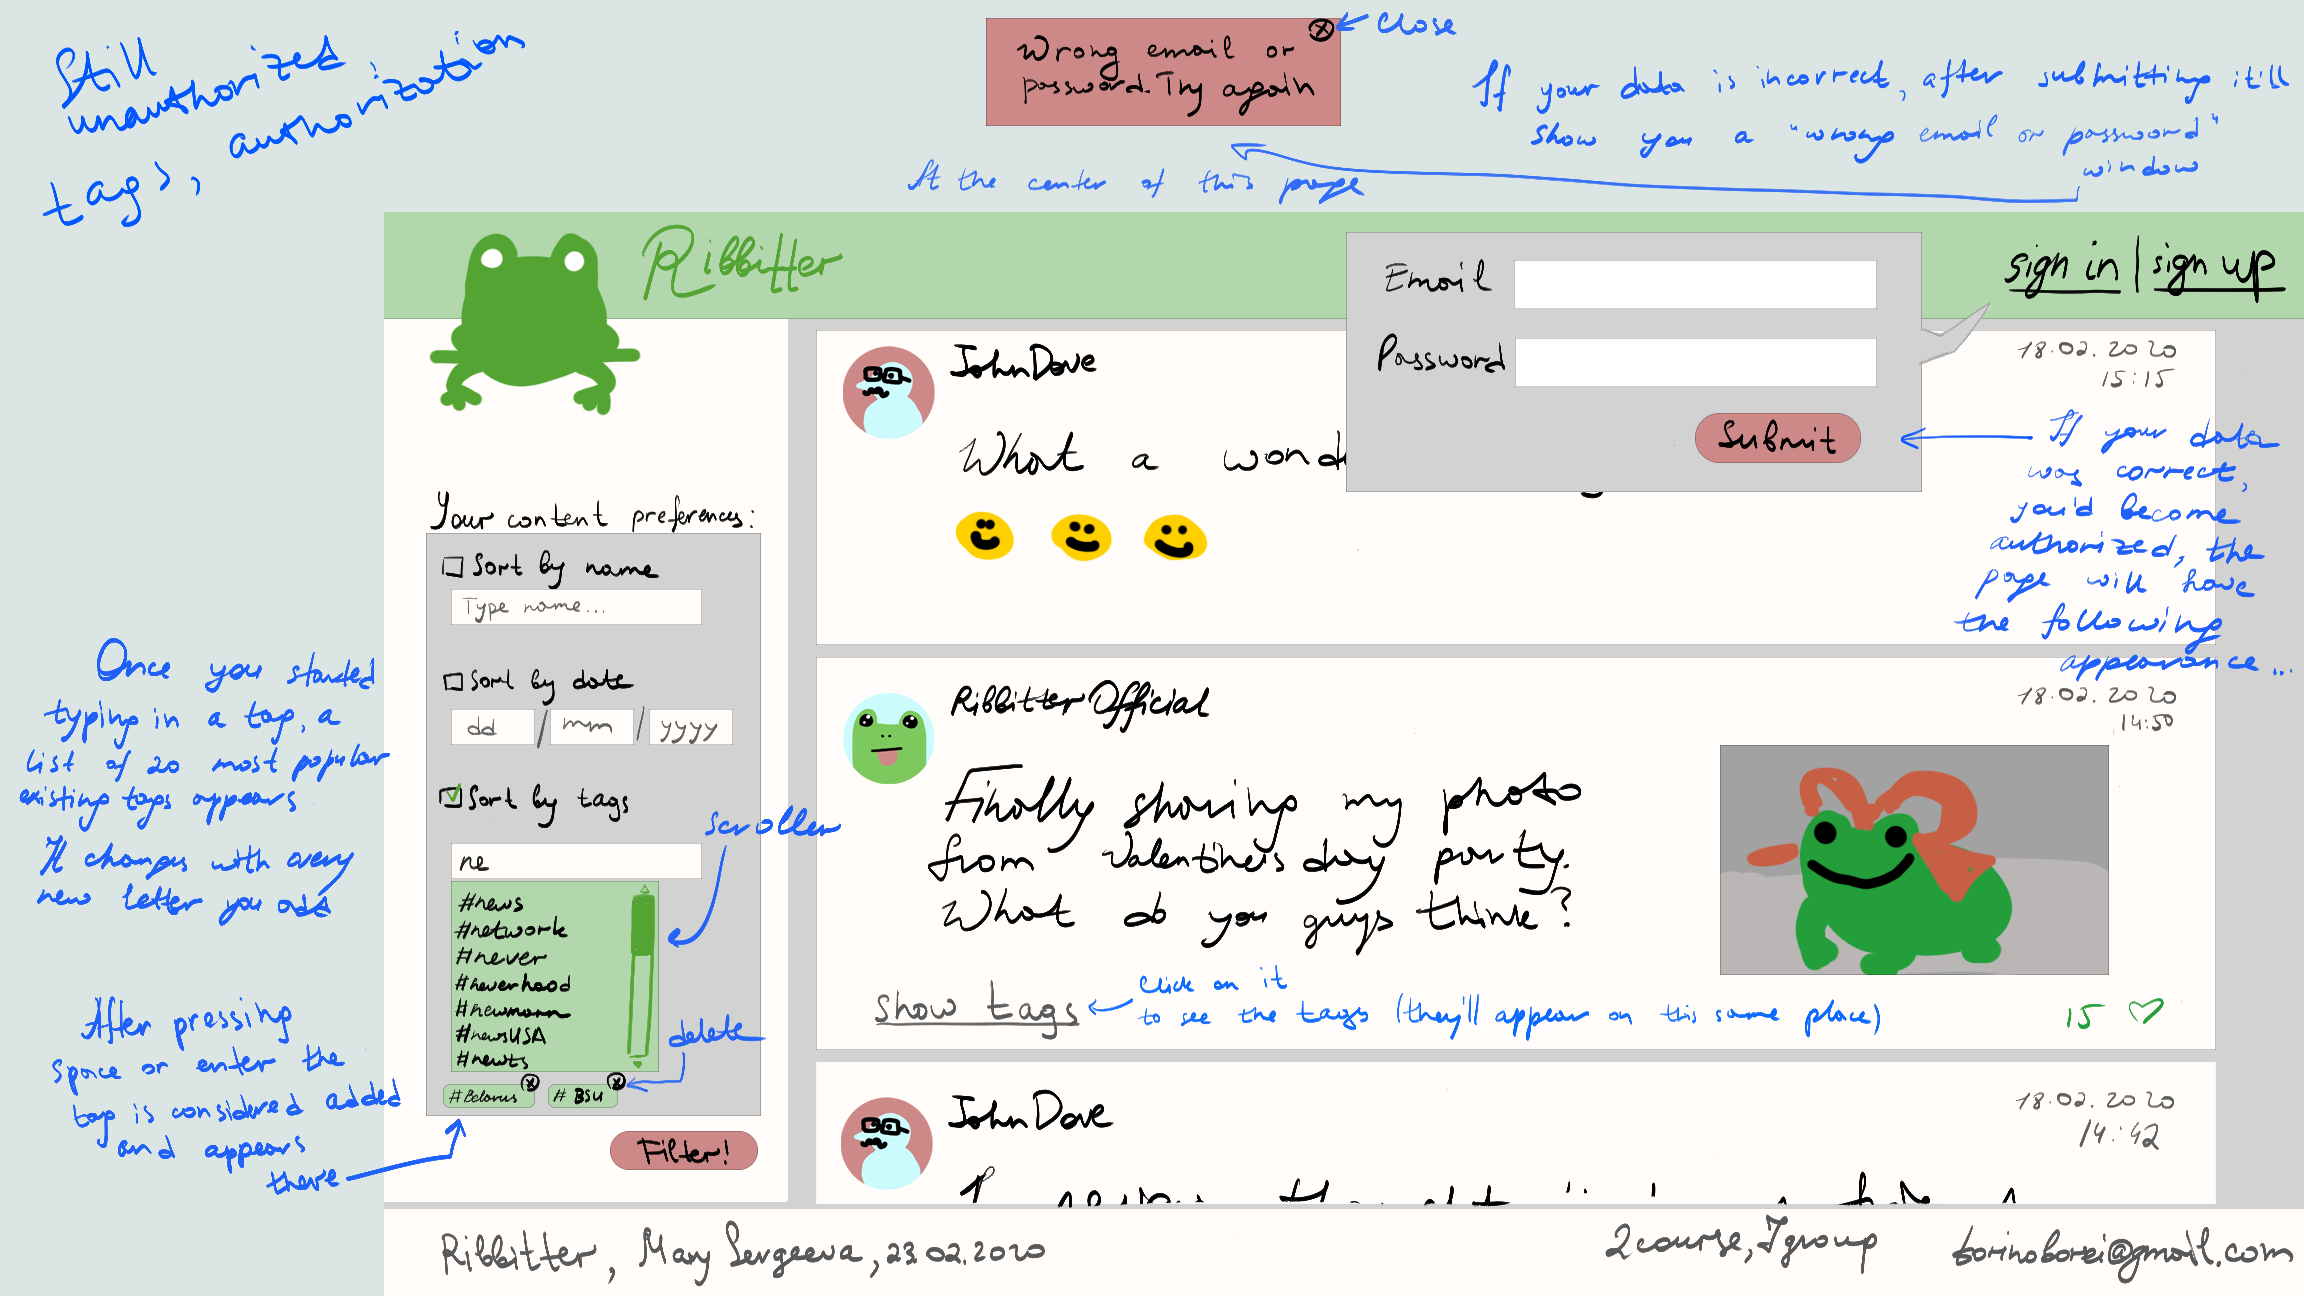 Still
unauthorized
tags, authorization
Wrong email or
password. Try again
close
If your data is incorrect, after submitting it'll
show you a "wrong email or password"
window
At the center of this page
Ribbitter
Email
Password
Submit
sign in | sign up
If your data
was correct,
you'd become
authorized, the
page will have
the following
appearance...
JohnDove
18.02.2020
15:15
What a wond
Your content preferences:
Sort by name
Type name...
Sort by date
dd / mm / yyyy
Sort by tags
ne
#news
#network
#never
#neverhood
#newmann
#newsUSA
#newts
#Belarus
#BSU
Filter!
scroller
delete
Once you started
typing in a tag, a
list of 20 most popular
existing tags appears
It changes with every
new letter you add
After pressing
space or enter the
tag is considered added
and appears
there
RibbitterOfficial
18.02.2020
14:50
Finally sharing my photo
from Valentine's day party.
What do you guys think?
show tags
Click on it
to see the tags (they'll appear on this same place)
15
JohnDove
18.02.2020
14:42
Ribbitter, Mary Sergeeva, 23.02.2020
2course, 7group